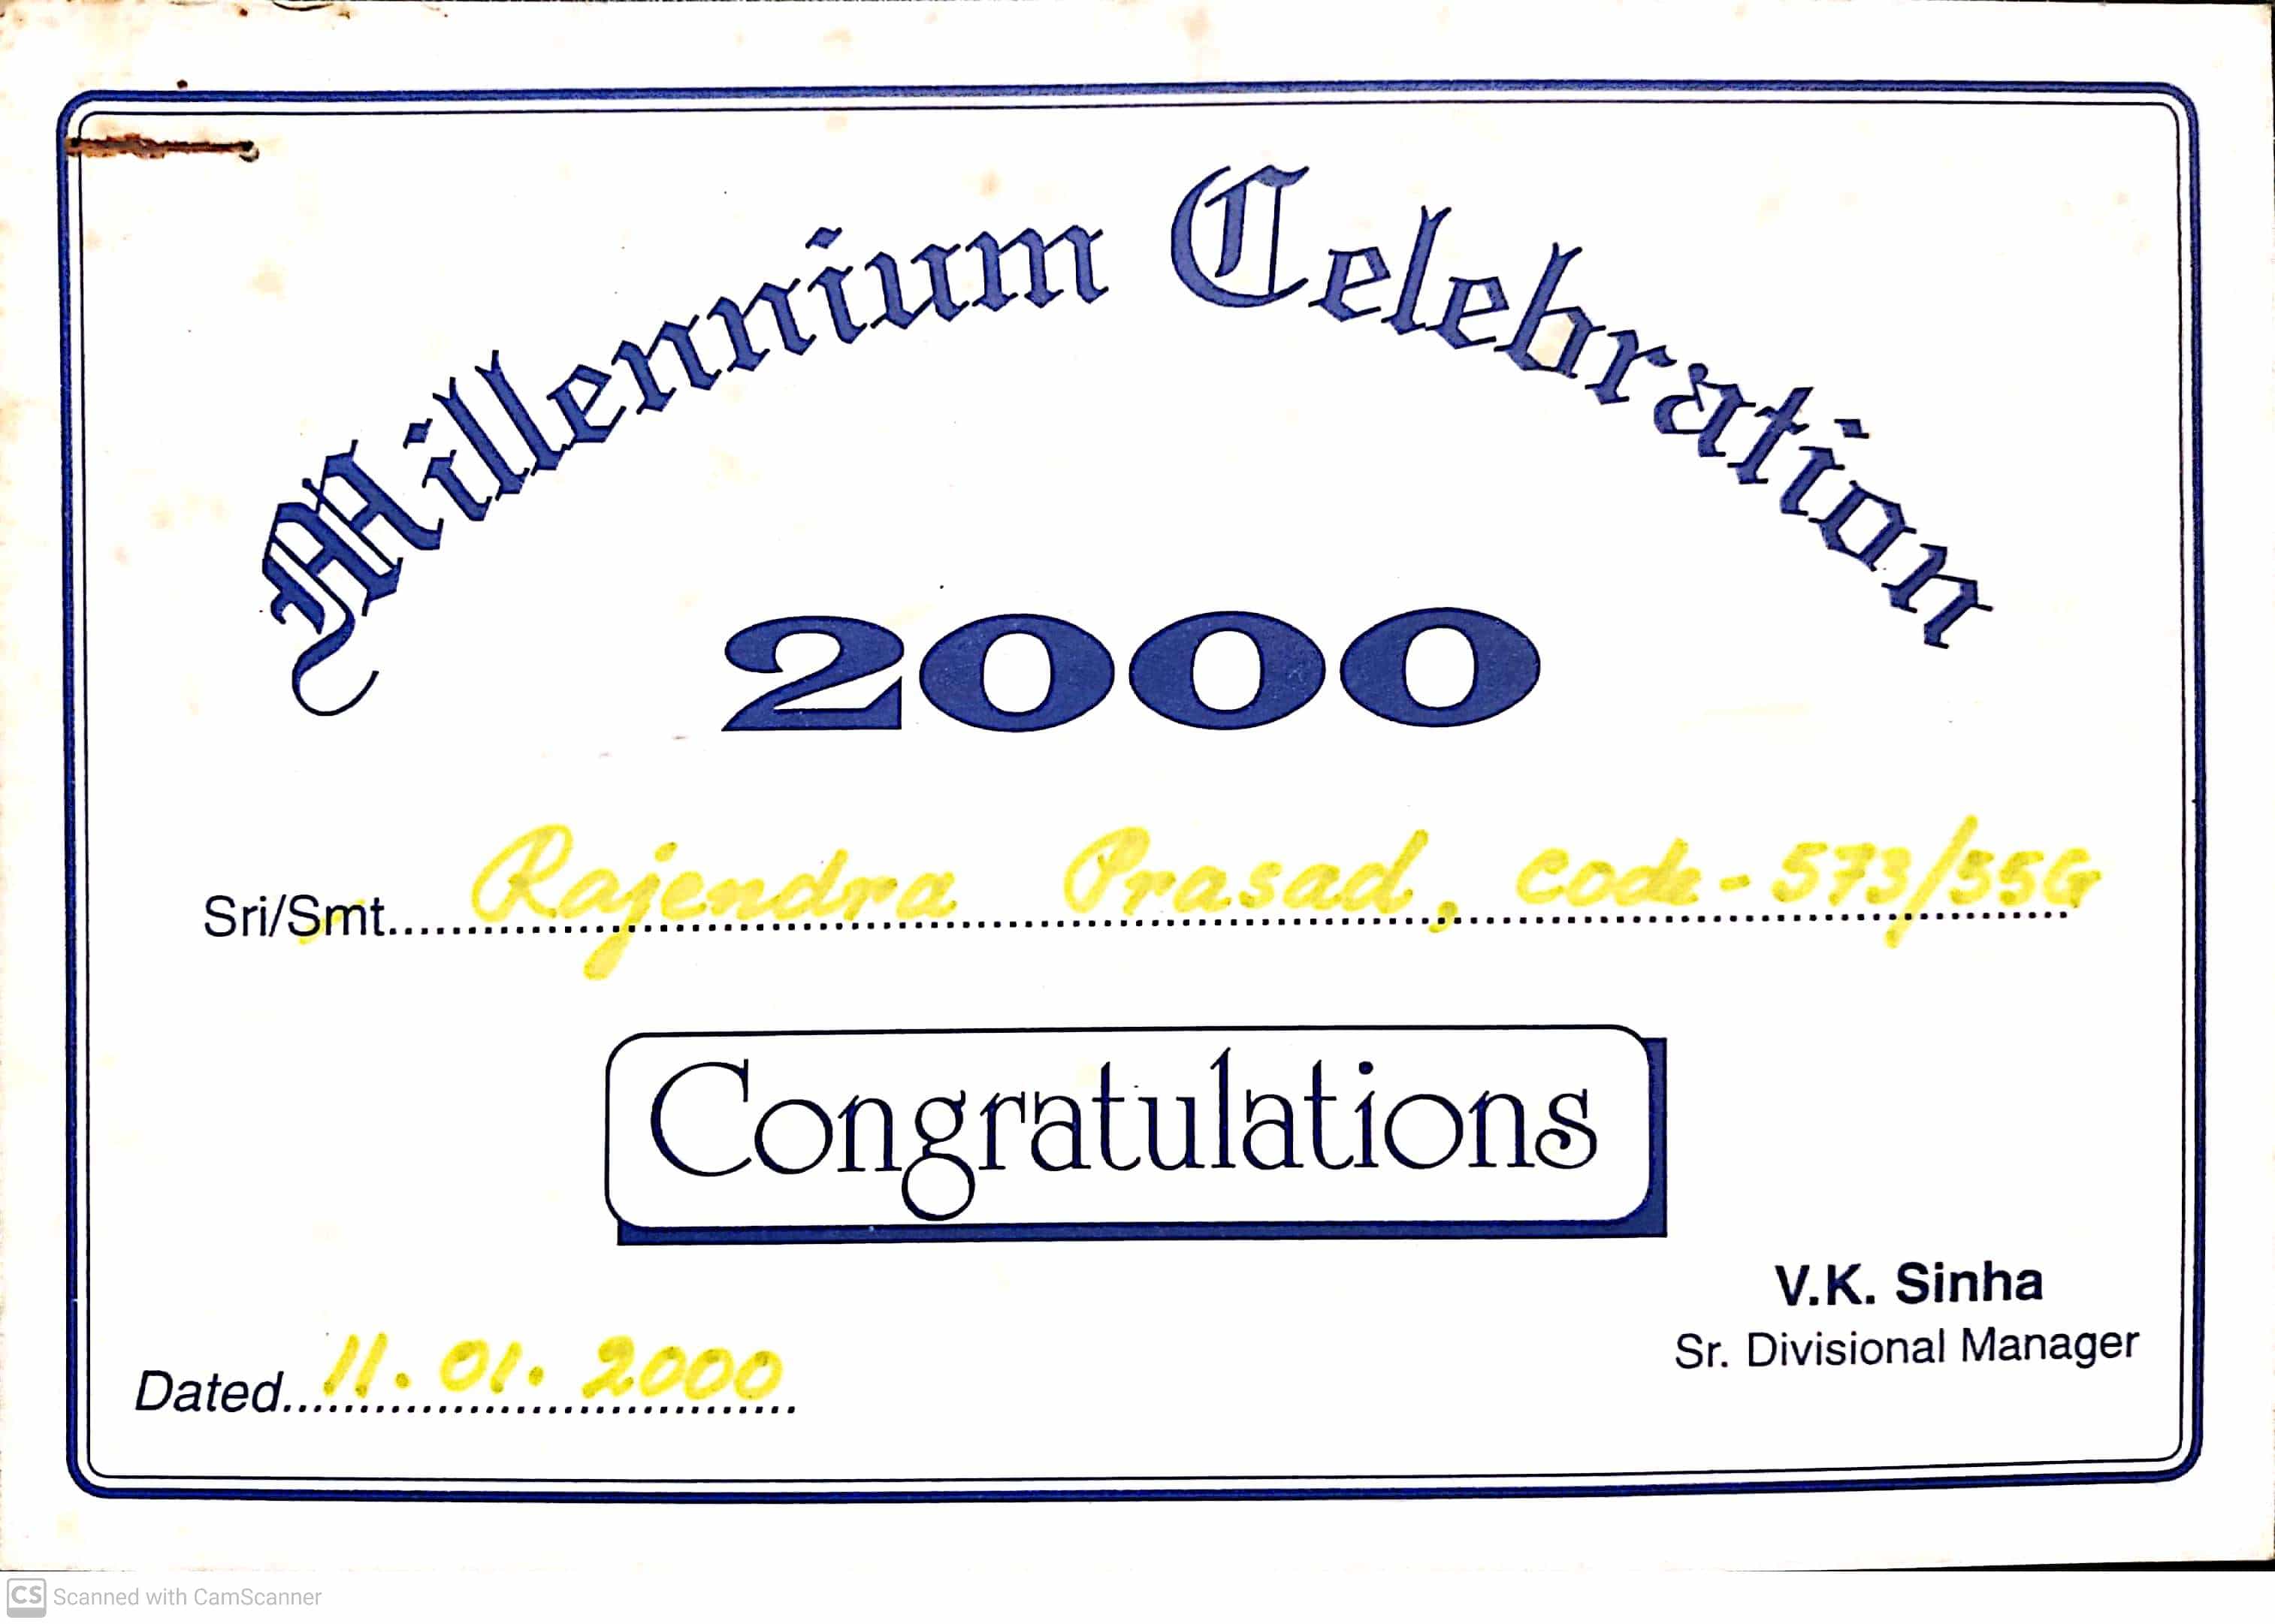 Millennium Celebration
2000
Sri/Smt. Rajendra Prasad, Code - 573/55G
Congratulations
V.K. Sinha
Sr. Divisional Manager
Dated 11.01.2000
CS Scanned with CamScanner